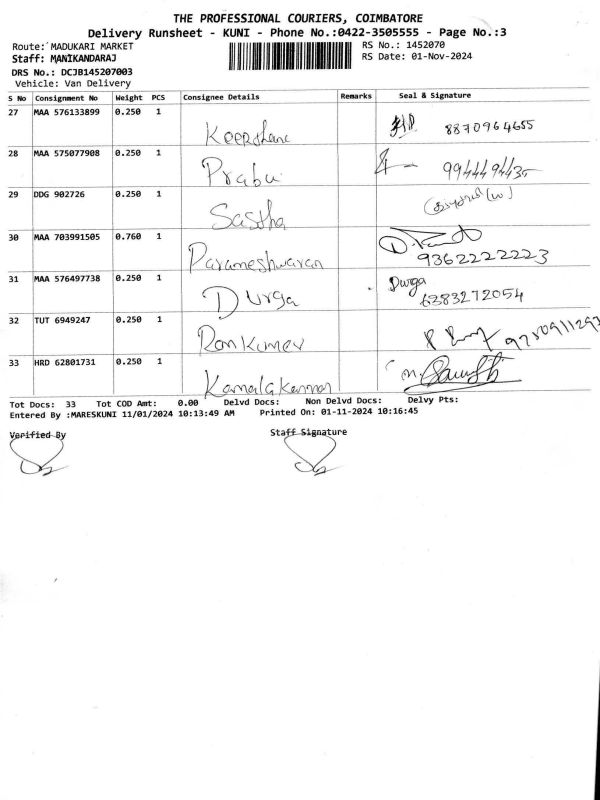 THE PROFESSIONAL COURIERS, COIMBATORE
Delivery Runsheet - KUNI - Phone No.:0422-3505555 - Page No.:3
Route: MADUKARI MARKET
RS No.: 1452070
Staff: MANIKANDARAJ
RS Date: 01-Nov-2024
DRS No.: DCJB145207003
Vehicle: Van Delivery
S No Consignment No Weight PCS Consignee Details Remarks Seal & Signature
27 MAA 576133899 0.250 1 Keerthana 8870964655
28 MAA 575077908 0.250 1 Prabu
29 DDG 902726 0.250 1 Sastha
30 MAA 703991505 0.760 1 Parameshwaran 9362222223
31 MAA 576497738 0.250 1 Durga Durga 6383272054
32 TUT 6949247 0.250 1 Ramkumar
33 HRD 62801731 0.250 1 Kamalakannan
Tot Docs: 33 Tot COD Amt: 0.00 Delvd Docs: Non Delvd Docs: Delvy Pts:
Entered By :MARESKUNI 11/01/2024 10:13:49 AM Printed On: 01-11-2024 10:16:45
Verified By Staff Signature